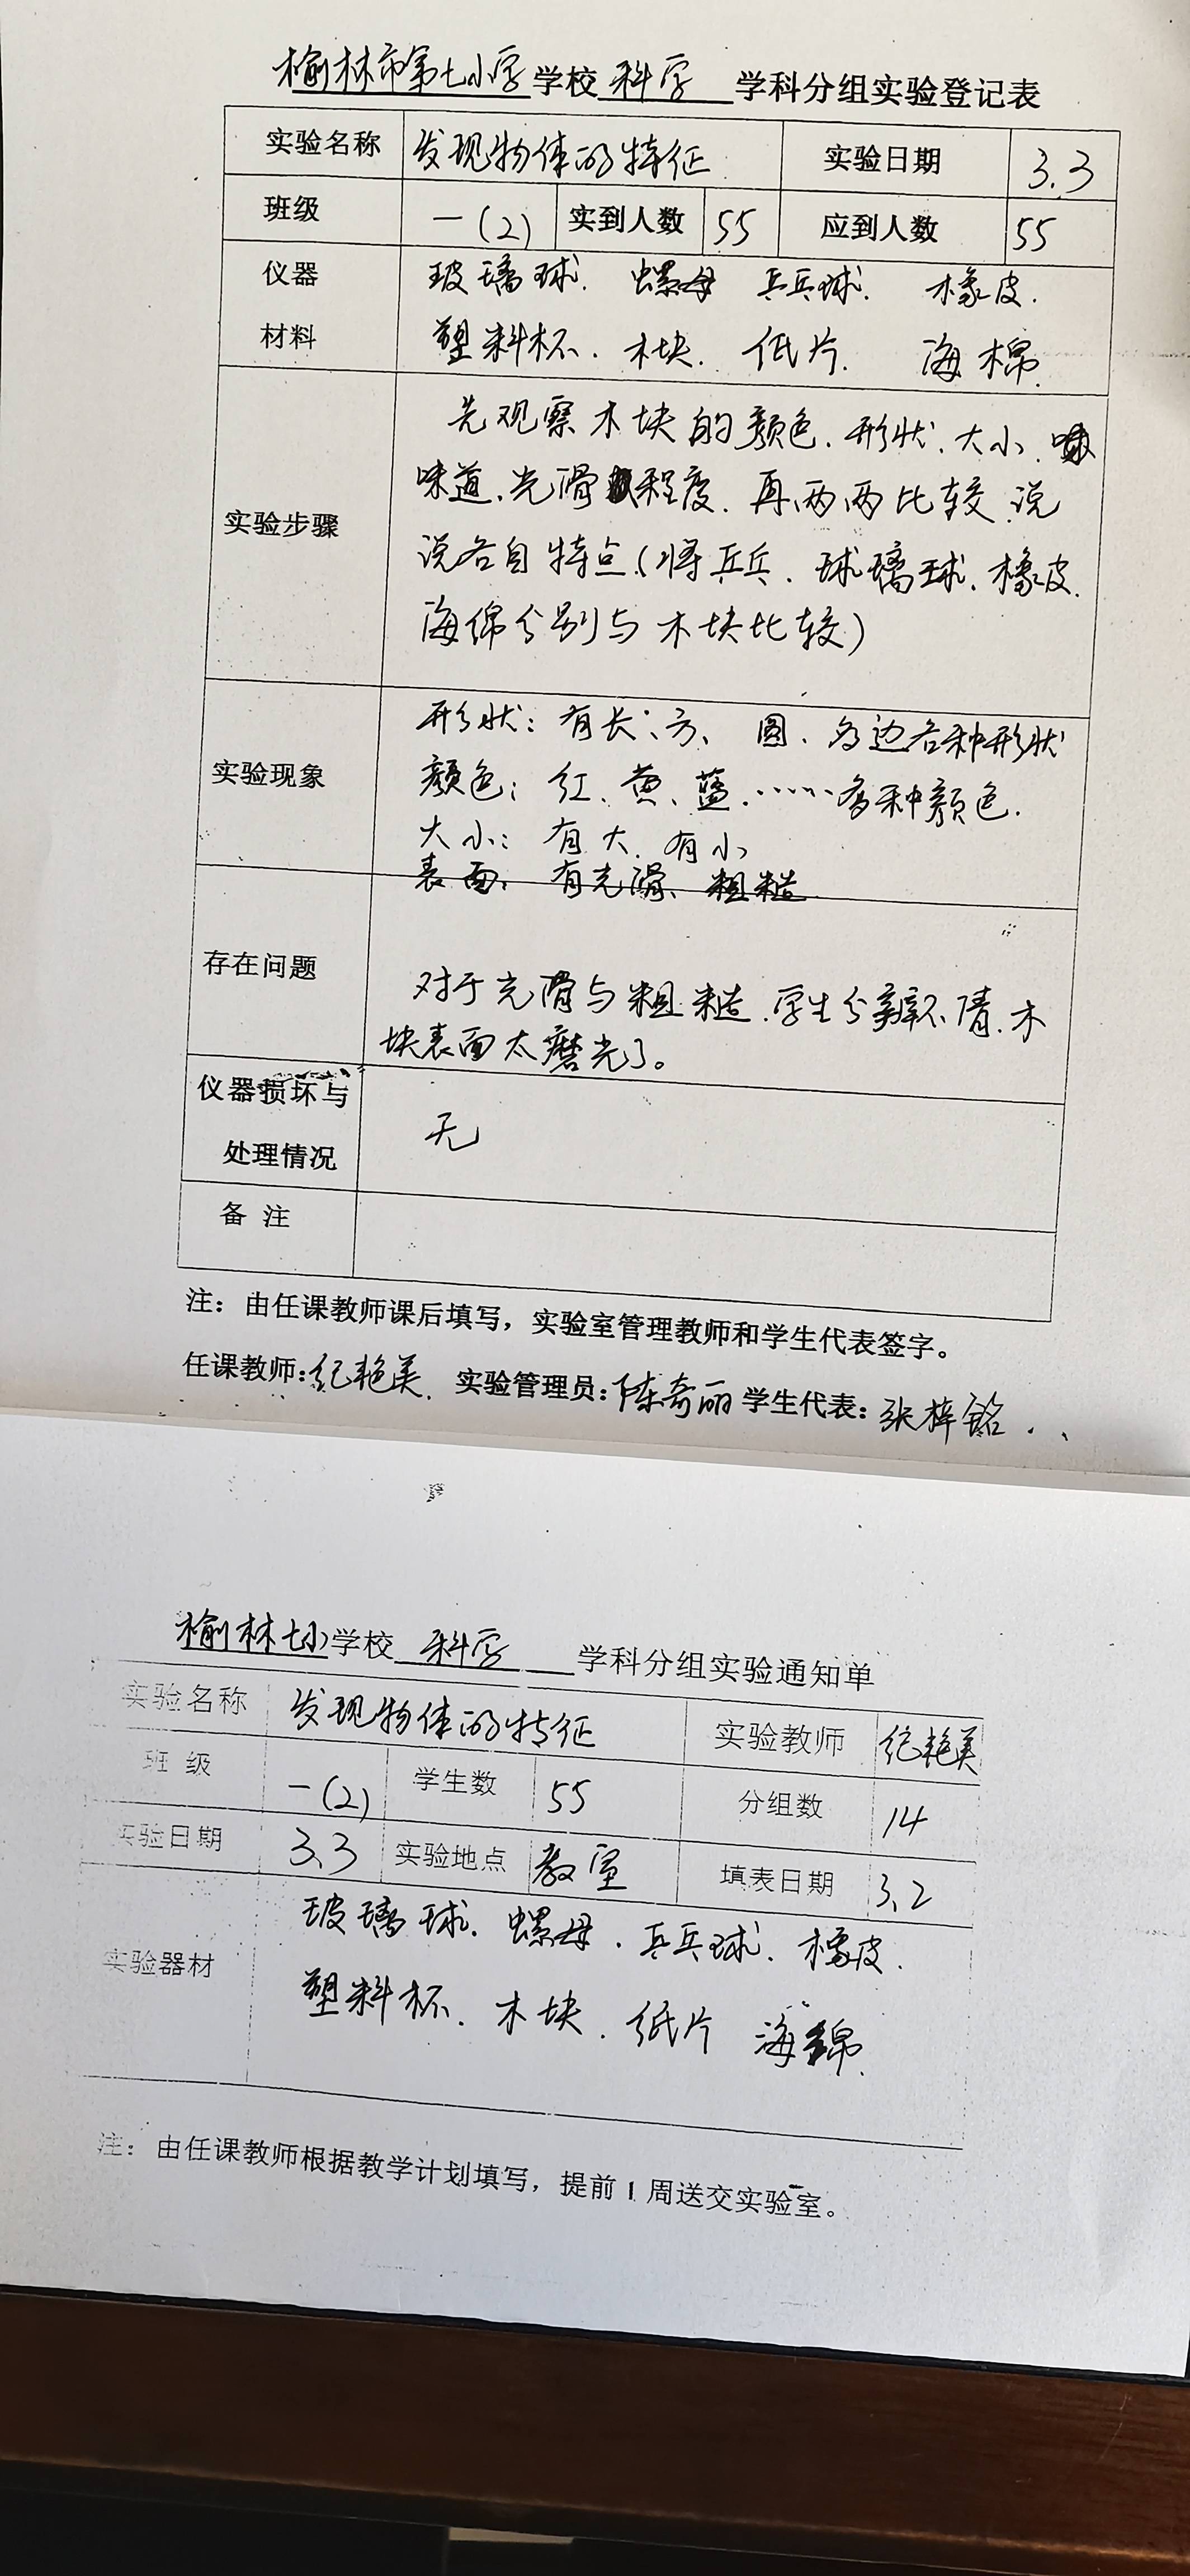 榆林市第七小学学校 科学 学科分组实验登记表
实验名称 发现物体的特征 实验日期 3.3
班级 一(2) 实到人数 55 应到人数 55
仪器 玻璃球. 螺母 乒乓球. 橡皮.
材料 塑料杯. 木块. 纸片. 海棉.
先观察木块的颜色.形状.大小.
味道.光滑程度.再两两比较.说
实验步骤
说各自特点(将乒乓.球璃球.橡皮.
海绵分别与木块比较)
形状:有长、方、圆、多边各种形状
实验现象 颜色:红、黄、蓝……各种颜色.
大小:有大.有小
表面:有光滑、粗糙
存在问题
对于光滑与粗糙.学生分辨不清.木
块表面太磨光了。
仪器损坏与
无
处理情况
备 注
注:由任课教师课后填写,实验室管理教师和学生代表签字。
任课教师:纪艳美. 实验管理员:陈奇丽 学生代表:张梓铭.
榆林七小学校 科学 学科分组实验通知单
实验名称 发现物体的特征 实验教师 纪艳美
班 级 一(2) 学生数 55 分组数 14
实验日期 3.3 实验地点 教室 填表日期 3.2
玻璃球. 螺母. 乒乓球. 橡皮.
实验器材
塑料杯. 木块. 纸片 海绵.
注:由任课教师根据教学计划填写,提前1周送交实验室。